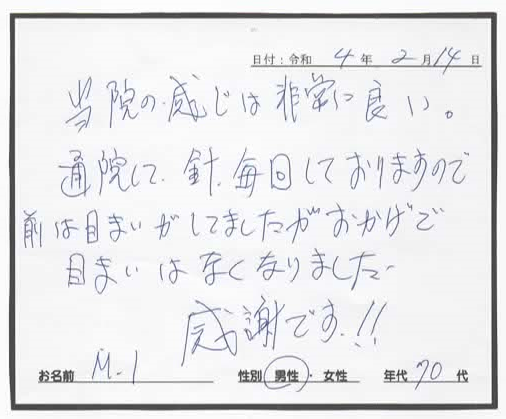 日付：令和 4 年 2 月 14 日
当院の感じは非常に良い。
通院して、針、毎回しておりますので
前は目まいがしてましたがおかげで
目まいはなくなりました。
感謝です!!
お名前 M.I 性別 男性・女性 年代 70 代